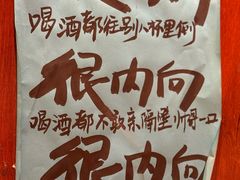 喝酒都往别人杯里倒
很内向
喝酒都不敢亲隔壁帅哥一口
很内向